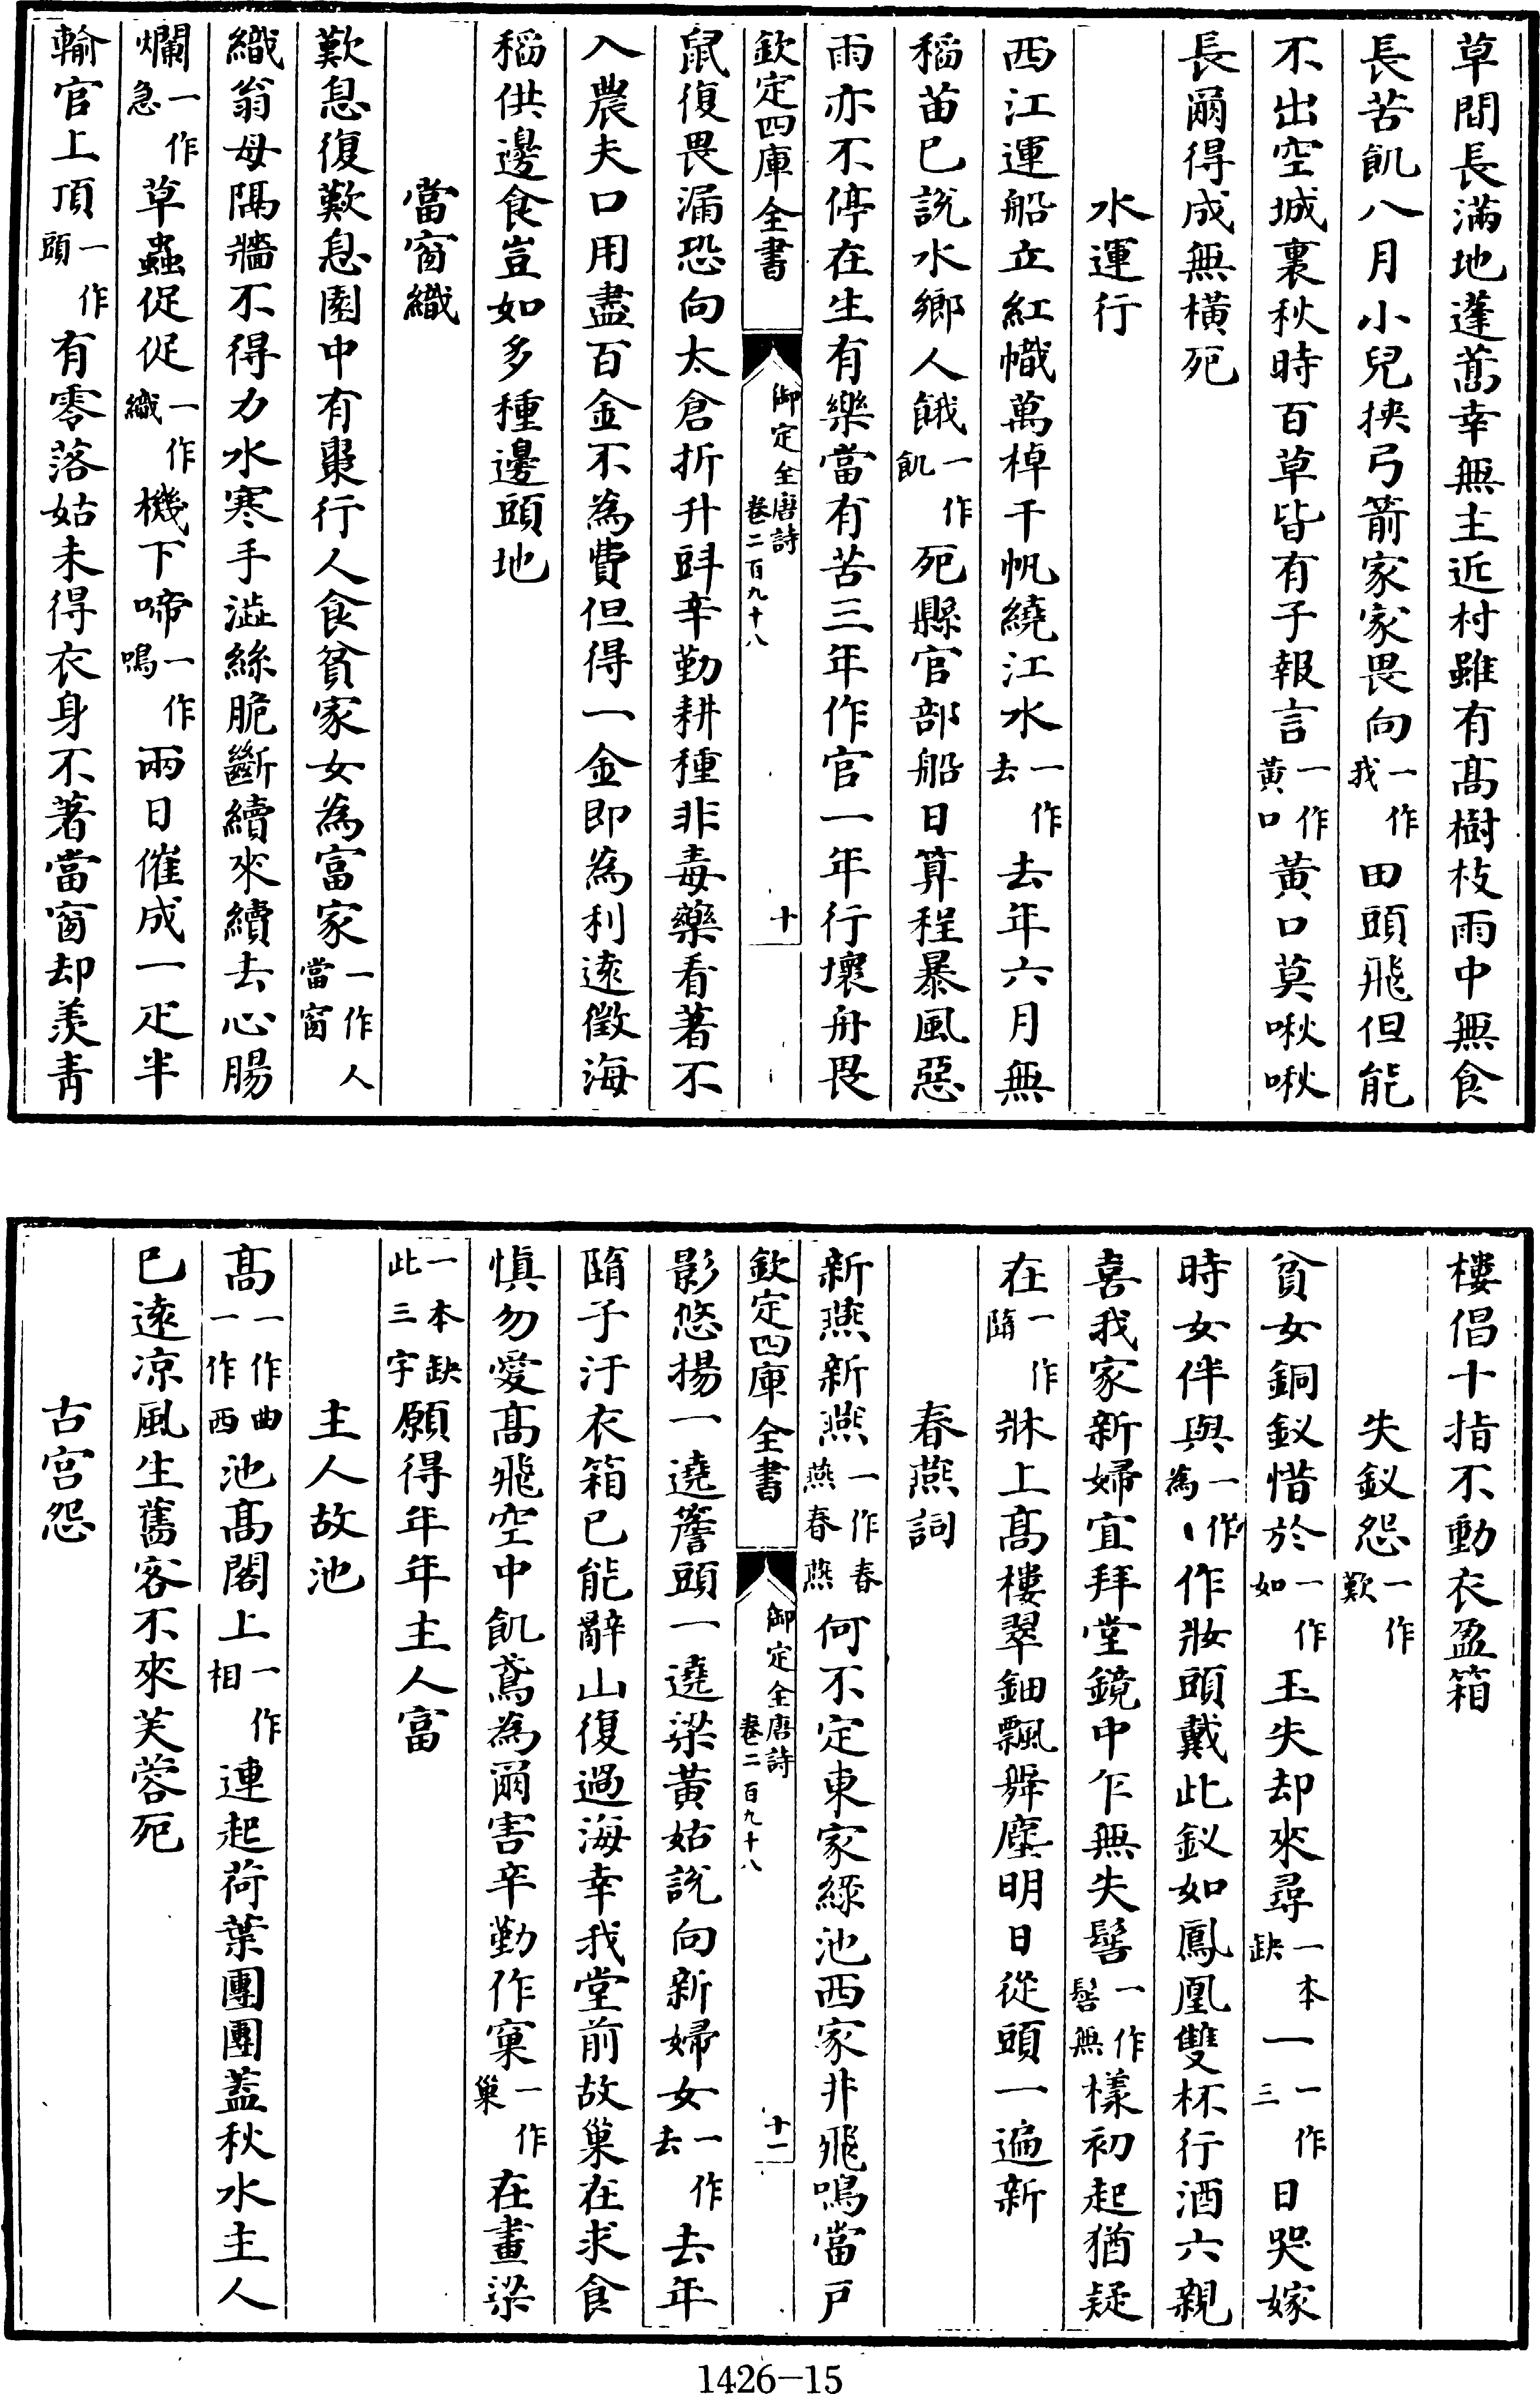 草間長滿地蓬蒿幸無主近村雖有髙樹枝雨中無食
長苦飢八月小兒挾弓箭家家畏向一作我田頭飛但能
不出空城裏秋時百草皆有子報言一作黄口黄口莫啾啾
長爾得成無横死
水運行
西江運船立紅幟萬棹千帆繞江水一作去去年六月無
稻苗已說水鄉人餓一作飢死縣官部船日算程暴風惡
雨亦不停在生有樂當有苦三年作官一年行壞舟畏
欽定四庫全書
御定全唐詩
卷二百九十八
十
鼠復畏漏恐向太倉折升㪷辛勤耕種非毒藥看著不
入農夫口用盡百金不為費但得一金即為利遠徵海
稻供邊食豈如多種邊頭地
當窗織
歎息復歎息園中有棗行人食貧家女為富家一作人當窗
織翁母隔牆不得力水寒手澁絲脆斷續來續去心腸
爛一作急草蟲促促一作織機下啼一作鳴兩日催成一疋半
輸官上頂一作頭有零落姑未得衣身不著當窗却羨青
樓倡十指不動衣盈箱
失釵怨一作歎
貧女銅釵惜於一作如玉失却來尋一本缺一一作三日哭嫁
時女伴與一作為作妝頭戴此釵如鳳凰雙杯行酒六親
喜我家新婦宜拜堂鏡中乍無失髻一作髻無樣初起猶疑
在一作隋牀上髙樓翠鈿飄舜塵明日從頭一遍新
春燕詞
新燕新燕一作春燕春燕何不定東家綠池西家井飛鳴當戶
欽定四庫全書
御定全唐詩
卷二百九十八
十一
影悠揚一遶簷頭一遶梁黄姑說向新婦女一作去去年
隋子汙衣箱已能辭山復過海幸我堂前故巢在求食
慎勿愛髙飛空中飢鳶為爾害辛勤作窠一作巢在畫梁
一本缺此三字願得年年主人富
主人故池
髙一作曲一作西池髙閣上一作相連起荷葉團團蓋秋水主人
已遠凉風生舊客不來芙蓉死
古宫怨
1426-15